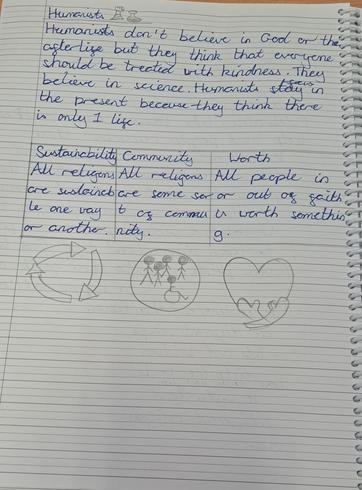 Humanists
Humanists don't believe in God or the
afterlife but they think that everyone
should be treated with kindness. They
believe in science. Humanists focus in
the present because they think there
is only 1 life.
Sustainability Community Worth
All religens All religens All people in
are sustaineb are some sor or out of faith
le one way t of commu is worth somethin
or another. nity. g.